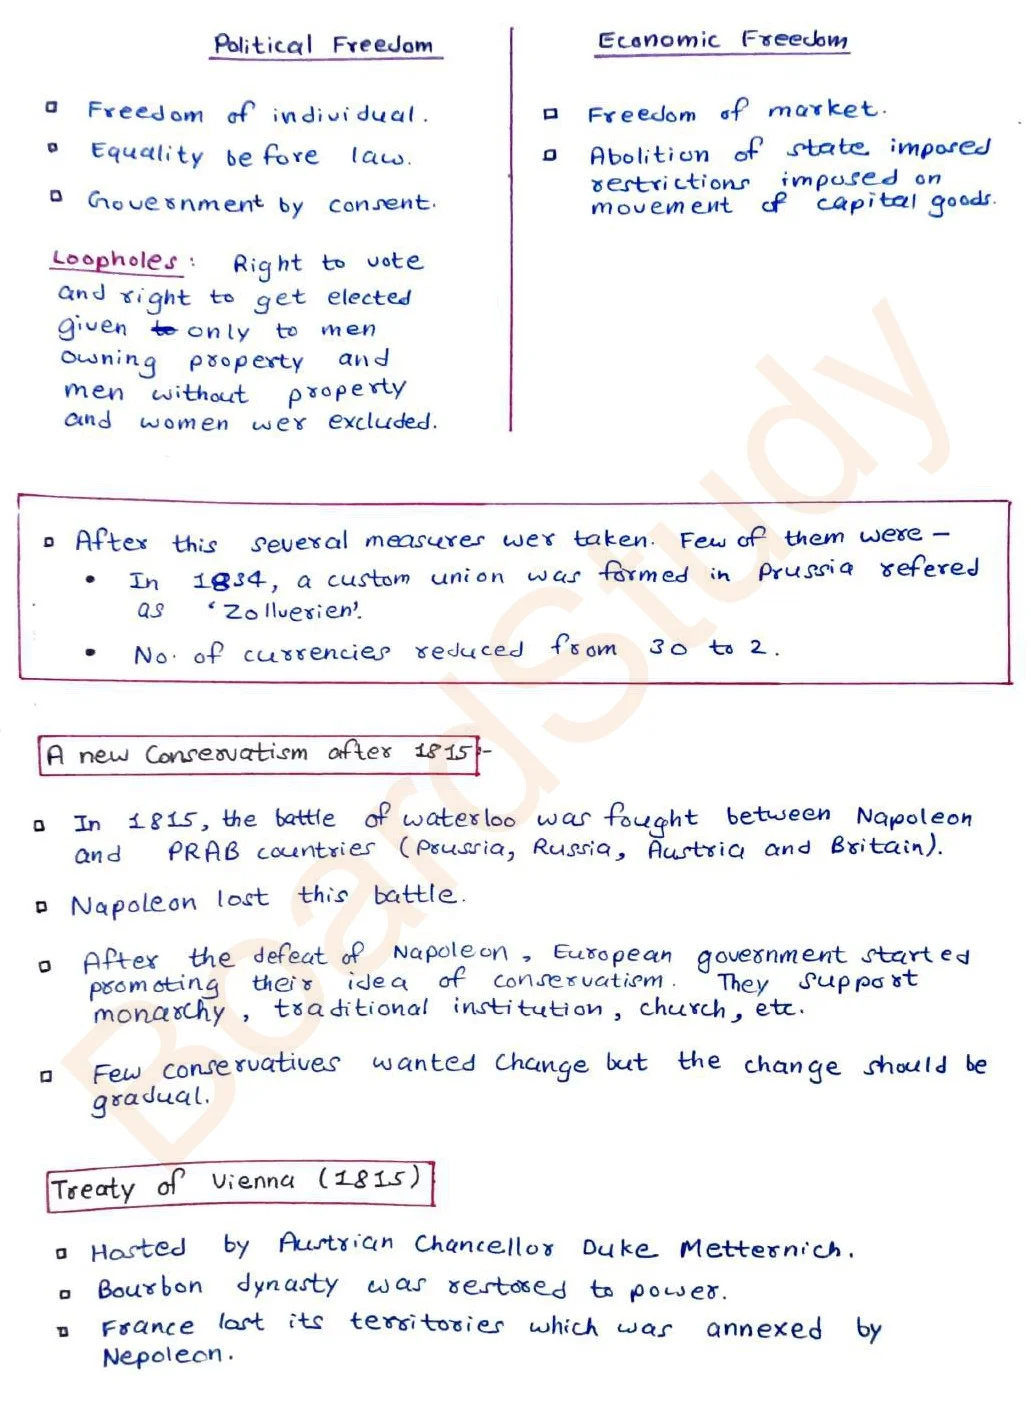 Political Freedom
Freedom of individual.
Equality before law.
Government by consent.
Loopholes: Right to vote
and right to get elected
given to only to men
owning property and
men without property
and women wer excluded.
Economic Freedom
Freedom of market.
Abolition of state imposed
restrictions imposed on
movement of capital goods.
After this several measures wer taken. Few of them were –
In 1834, a custom union was formed in Prussia refered
as 'Zollverien'.
No. of currencies reduced from 30 to 2.
A new Conservatism after 1815:-
In 1815, the battle of waterloo was fought between Napoleon
and PRAB countries (Prussia, Russia, Austria and Britain).
Napoleon lost this battle.
After the defeat of Napoleon, European government started
promoting their idea of conservatism. They support
monarchy, traditional institution, church, etc.
Few conservatives wanted change but the change should be
gradual.
Treaty of Vienna (1815)
Hosted by Austrian Chancellor Duke Metternich.
Bourbon dynasty was restored to power.
France lost its territories which was annexed by
Nepoleon.
BoardStudy